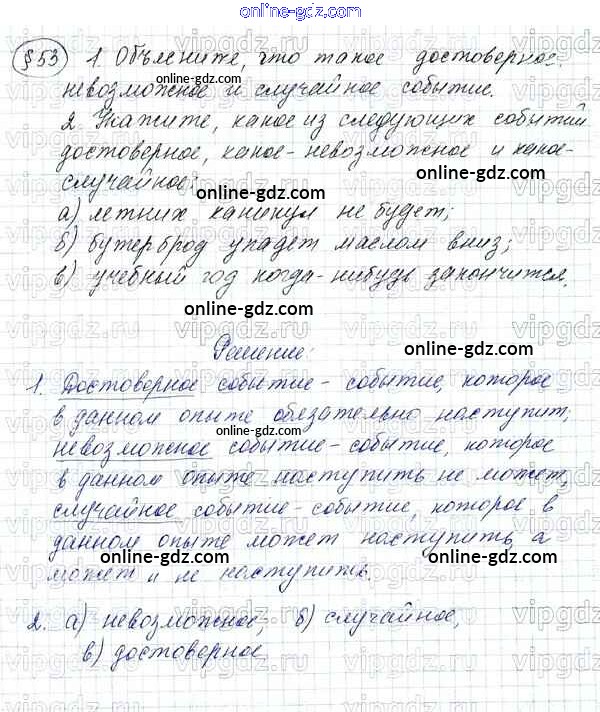 online-gdz.com
§53 1. Объясните, что такое достоверное,
online-gdz.com
невозможное и случайное событие.
2. Укажите, какое из следующих событий
online-gdz.com
достоверное, какое - невозможное и какое -
случайное:
online-gdz.com
а) летних каникул не будет;
online-gdz.com
б) бутерброд упадет маслом вниз;
online-gdz.com
в) учебный год когда-нибудь закончится.
online-gdz.com
Решение:
online-gdz.com
1. Достоверное событие - событие, которое
online-gdz.com
в данном опыте обязательно наступит;
online-gdz.com
невозможное событие - событие, которое
в данном опыте наступить не может,
online-gdz.com
случайное событие - событие, которое в
online-gdz.com
данном опыте может наступить, а
online-gdz.com
может и не наступить.
online-gdz.com
2. а) невозможное; б) случайное,
online-gdz.com
в) достоверное
online-gdz.com